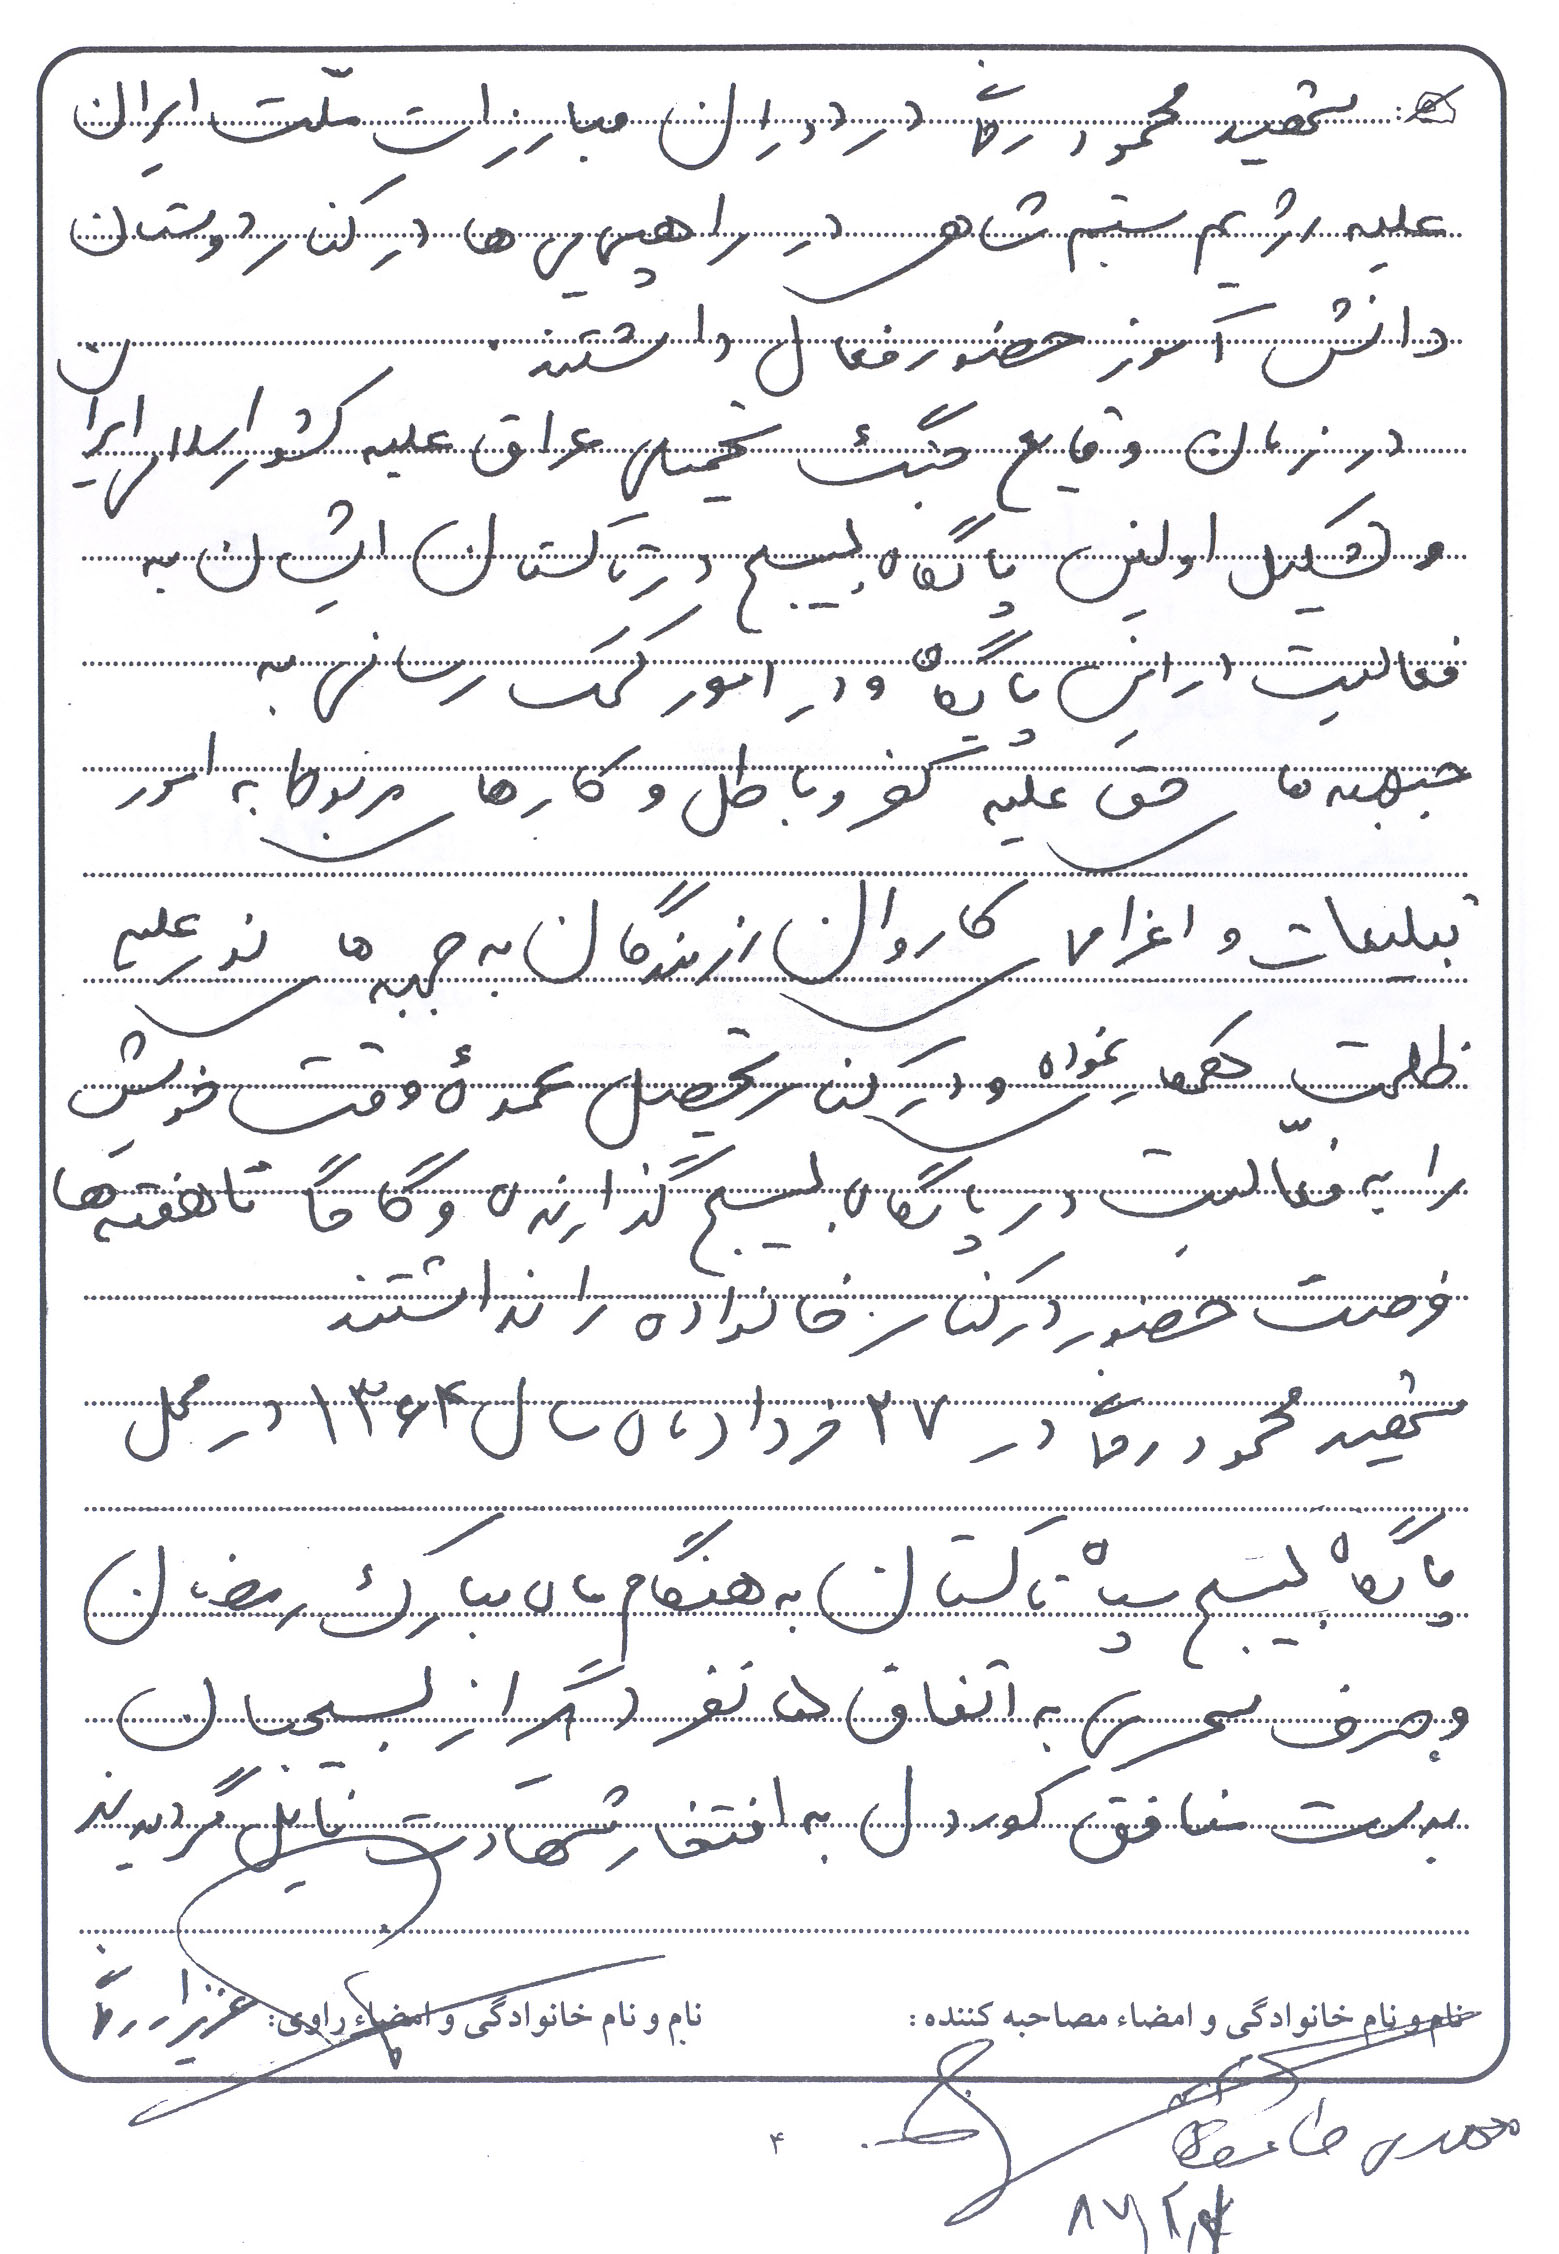 شهید محمود رقا در دوران مبارزات ملّت ایران
علیه رژیم ستم شاهی در راهپیمایی ها در کنار دوستان
دانش آموز حضور فعال داشتند.
در زمان وقایع جنگ تحمیلی عراق علیه کشور اسلامی ایران
و تشکیل اولین پایگاه بسیج در تاکستان ایشان به
فعالیت در این پایگاه و در امور کمک رسانی به
جبهه های حق علیه کفر و باطل و کارهای مربوط به امور
تبلیغات و اعزام کاروان رزمندگان به جبهه های نور علیه
ظلمت نموده و در کنار تحصیل عمدهٔ وقت خویش
را به فعّالیت در پایگاه بسیج گذارنده و گاهاً تا هفته ها
فرصت حضور در کنار خانواده را نداشتند
شهید محمود رقا در ۲۷ خرداد ماه سال ۱۳۶۴ در محل
پایگاه بسیج سپاه تاکستان به هنگام ماه مبارک رمضان
و صرف سحری به اتفاق ۵ نفر دیگر از بسیجیان
بدست منافق کوردل به افتخار شهادت نایل گردیدند
نام و نام خانوادگی و امضاء مصاحبه کننده :
نام و نام خانوادگی و امضاء راوی: عزیزا...
۴